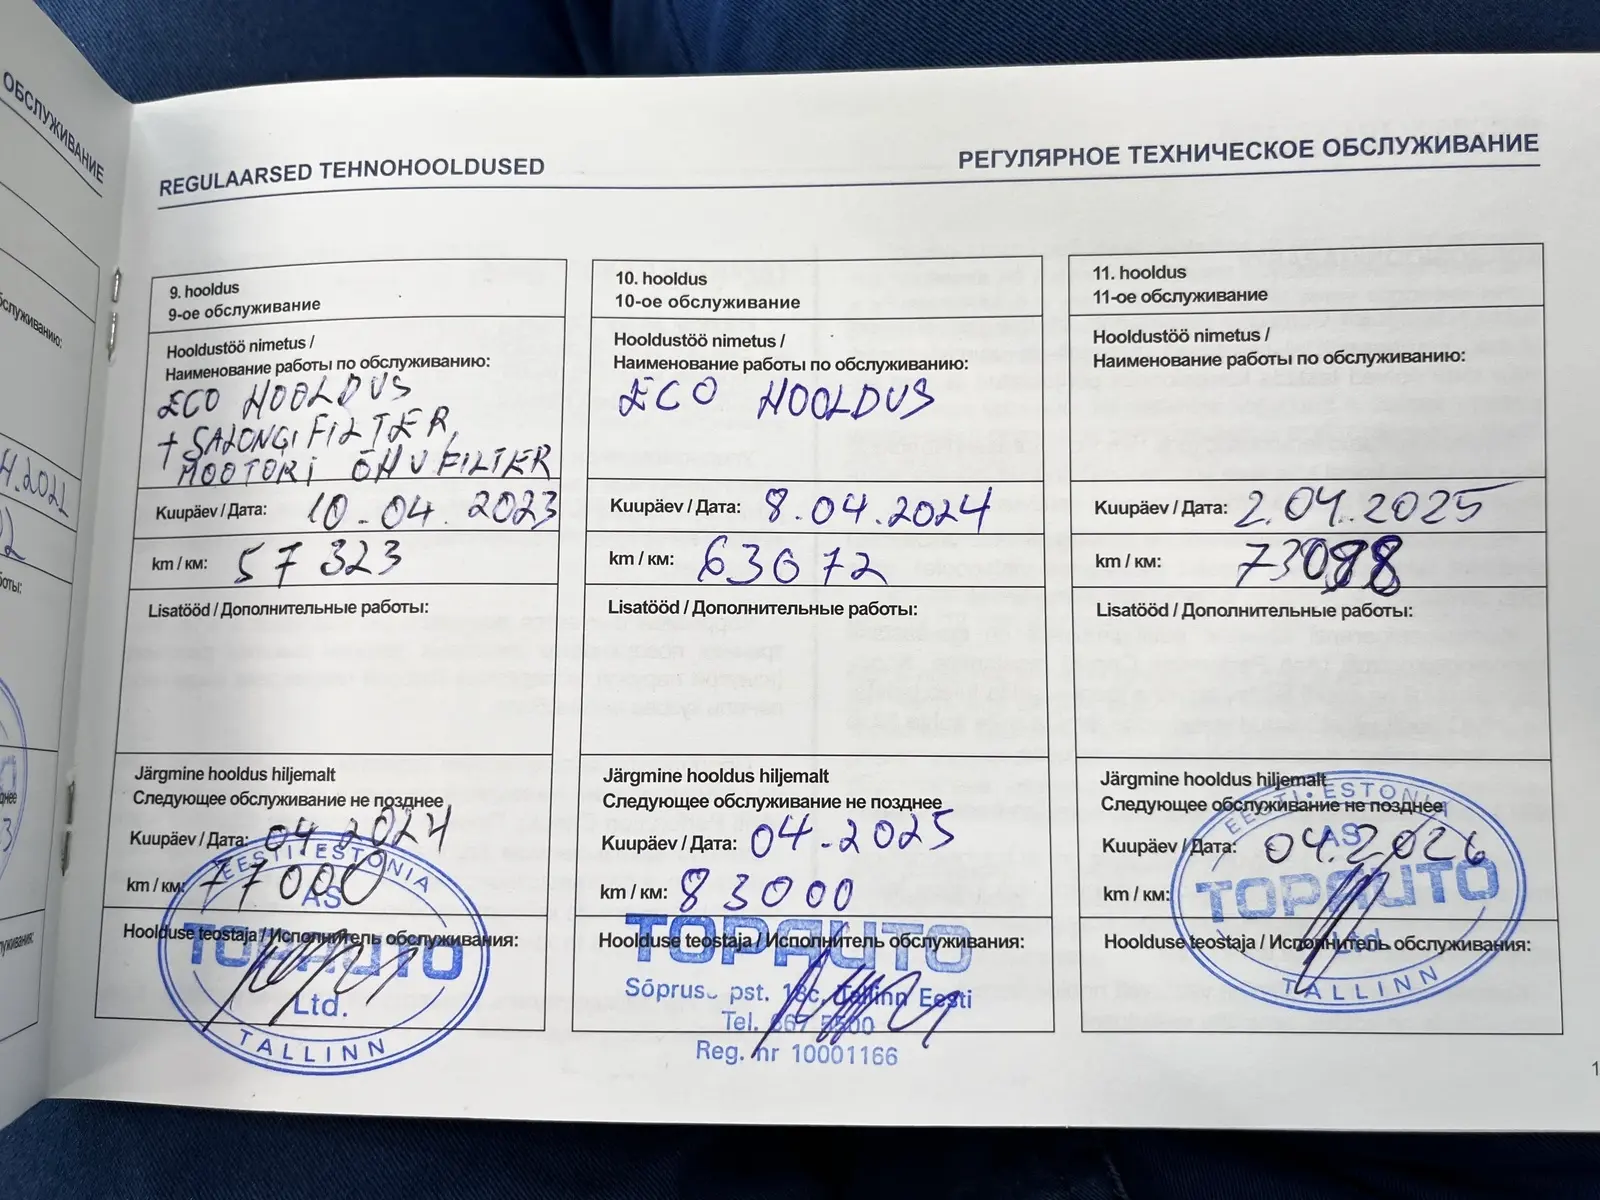 ОБСЛУЖИВАНИЕ
REGULAARSED TEHNOHOOLDUSED
РЕГУЛЯРНОЕ ТЕХНИЧЕСКОЕ ОБСЛУЖИВАНИЕ
9. hooldus
9-ое обслуживание
Hooldustöö nimetus /
Наименование работы по обслуживанию:
ECO HOOLDUS
+ SALONGI FILTER,
MOOTORI ÕHUFILTER
Kuupäev / Дата: 10.04.2023
km / км: 57323
Lisatööd / Дополнительные работы:
Järgmine hooldus hiljemalt
Следующее обслуживание не позднее
Kuupäev / Дата: 04.2024
km / км: 77000
Hoolduse teostaja / Исполнитель обслуживания:
EESTI • ESTONIA
AS
TOPAUTO
Ltd.
TALLINN
10. hooldus
10-ое обслуживание
Hooldustöö nimetus /
Наименование работы по обслуживанию:
ECO HOOLDUS
Kuupäev / Дата: 8.04.2024
km / км: 63672
Lisatööd / Дополнительные работы:
Järgmine hooldus hiljemalt
Следующее обслуживание не позднее
Kuupäev / Дата: 04.2025
km / км: 83000
Hoolduse teostaja / Исполнитель обслуживания:
TOPAUTO
pst. Tallinn Eesti
Tel. 667 5500
Reg. nr 10001166
11. hooldus
11-ое обслуживание
Hooldustöö nimetus /
Наименование работы по обслуживанию:
Kuupäev / Дата: 2.04.2025
km / км:
Lisatööd / Дополнительные работы:
Järgmine hooldus hiljemalt
Следующее обслуживание не позднее
Kuupäev / Дата: 04.2026
km / км:
Hoolduse teostaja / Исполнитель обслуживания:
EESTI • ESTONIA
AS
TOPAUTO
Ltd.
TALLINN